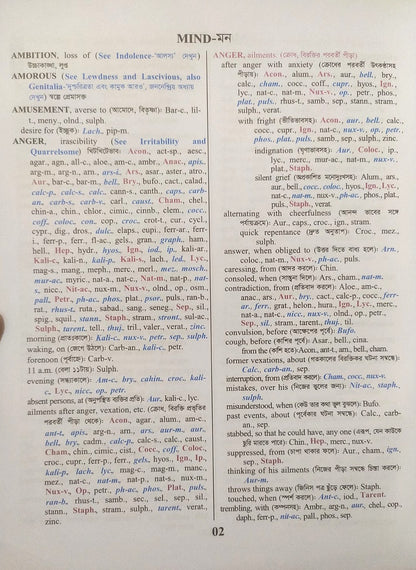 MIND-মন
AMBITION, loss of (See Indolence-'আলস্য' দেখুন)
উচ্চাকাঙ্ক্ষা, লুপ্ত
AMOROUS (See Lewdness and Lascivious, also
AMUSEMENT, averse to (আমোদে, বিতৃষ্ণা): Bar-c., lil-
t., meny., olnd., sulph.
desire for (ইচ্ছুক): Lach., pip-m.
ANGER, irascibility (See Irritability and
Quarrelsome) খিটখিটেভাব: Acon., act-sp., aesc.,
agar., agn., all-c., aloe, am-c., ambr., Anac., apis.,
arg-m., arg-n., arn., ars-i., Ars., asar., aster., atro.,
Aur., bar-c., bar-m., bell., Bry., bufo., cact., calad.,
calc-p., calc-s., calc., cann-s., canth., caps., carb-
an., carb-s., carb-v., carl., caust., Cham., chel.,
chin-a., chin., chlor., cimic., cimb., clem., cocc.,
coff., coloc., con., cop., croc., crot-t., cur., cycl.,
cypr., dig., dros., dulc., elaps., eupi., ferr-ar., ferr-
i., ferr-p., ferr., fl-ac., gels., gran., graph., ham.,
hell., Hep., hydr., hyos., Ign., iod., ip., kali-ar.,
Kali-c., kali-n., kali-p., Kali-s., lach., led., Lyc.,
mag-s., mang., meph., merc., merl., mez., mosch.,
mur-ac., myric., nat-a., nat-c., Nat-m., nat-p., nat-
s., nicc., Nit-ac., nux-m., Nux-v., olnd., op., osm.,
pall., Petr., ph-ac., phos., plat., psor., puls., ran-b.,
rat., rhus-t., ruta., sabad., sang., seneg., Sep., sil.,
spig., squil., stann., Staph., stram., stront., sul-ac.,
Sulph., tarent., tell., thuj., tril., valer., verat., zinc.
morning (প্রাতঃকালে): Kali-c., nux-v., petr., sep., sulph.
waking, on (জেগে উঠলে): Carb-an., kali-c., petr.
forenoon (পূর্বাহ্নে): Carb-v.
11 a.m. (বেলা ১১টায়): Sulph.
evening (সন্ধ্যাকালে): Am-c., bry., cahin., croc., kali-
c., Lyc., nicc., op., petr.
absent persons, at (অনুপস্থিত ব্যক্তির প্রতি): Aur., kali-c., lyc.
ailments after anger, vexation, etc. (ক্রোধ, বিরক্তি প্রভৃতির
পরবর্তী পীড়া থেকে): Acon., agar., alum., am-c.,
ant-t., apis., arg-n., arn., ars., aur-m., aur.,
bell., bry., cadm., calc-p., calc-s., calc., caust.,
Cham., chin., cimic., cist., Cocc., coff., Coloc.,
croc., cupr., ferr-p., ferr., gels., hyos., Ign., Ip.,
kali-p., lach., lyc., mag-c., mag-m., manc.,
mez., nat-c., nat-m., nat-p., nat-s., nux-m.,
Nux-v., Op., petr., ph-ac., phos., Plat., puls.,
ran-b., rhus-t., samb., sec., sel., sep., sil.,
stann., Staph., stram., sulph., tarent., verat.,
zinc.
ANGER, ailments (ক্রোধ, বিরক্তির পরবর্তী পীড়া)
after anger with anxiety (ক্রোধের পরবর্তী উৎকণ্ঠাসহ
পীড়ায়): Acon., alum., Ars., aur., bell., bry.,
calc., cham., cocc., coff., cupr., hyos., Ign.,
lyc., nat-c., nat-m., Nux-v., op., petr., phos.,
plat., puls., rhus-t., samb., sep., stann., stram.,
sulph., verat.
with fright (ভীতিভাবসহ): Acon., aur., bell., calc.,
cocc., cupr., Ign., nat-c., nux-v., op., petr.,
phos., plat., puls., samb., sep., sulph., zinc.
indignation (ঘৃণাভাবসহ): Aur., Coloc., ip.,
lyc., merc., mur-ac., nat-m., nux-v.,
plat., Staph.
silent grief (অপ্রকাশিত মনোদুঃখসহ): Alum., ars.,
aur., bell., cocc., coloc., hyos., Ign., Lyc.,
nat-c., nat-m., nux-v., ph-ac., phos., plat.,
puls., Staph., verat.
alternating with cheerfulness (আনন্দ ভাবের সঙ্গে
পর্যায়ক্রমে): Aur., caps., croc., ign., stram.
quick repentance (দ্রুত অনুতাপ): Croc., mez.,
sulph.
answer, when obliged to (উত্তর দিতে বাধ্য হলে): Arn.,
coloc., nat-m., Nux-v., ph-ac., puls.
caressing, from (আদর করলে): Chin.
consoled, when (সান্ত্বনা দিলে): Ars., cham., nat-m.
contradiction, from (প্রতিবাদ করলে): Aloe., am-c.,
anac., ars., Aur., bry., cact., calc-p., cocc., ferr-
ar., ferr., grat., helon., hura., Ign., Lyc., merc.,
nat-a., nat-c., nicc., nux-v., olnd., op., petr.,
Sep., sil., stram., tarent., thuj., til.
convulsion, before (আক্ষেপের পূর্বে): Bufo.
cough, before (কাশির পূর্বে): Asar., bell., cina.
from the (কাশি হলে): Acon., ant-t., arn., bell., cham.
former vexations, about (গতকালের বিরক্তিকর ঘটনা সম্বন্ধে):
Calc., carb-an., sep.
interruption, from (প্রতিবাদ করলে): Cham., cocc., nux-v.
mistakes, over his (নিজের ভুলের জন্য): Nit-ac., staph.,
sulph.
misunderstood, when (কেউ তার কথা ভুল বুঝলে): Bufo.
past events, about (পূর্বেকার ঘটনা সম্বন্ধে): Calc., carb-
an., sep.
stabbed, so that he could have, any one (এরূপ, যেন কাউকে
ছুরি মারতে পারে): Chin., Hep., merc., nux-v.
suppressed, from (চাপা থাকার ফলে): Aur., cham., ign.,
sep., Staph.
thinking of his ailments (নিজের পীড়া সম্বন্ধে চিন্তা করলে):
Aur-m.
throws things away (জিনিস পত্র ছুঁড়ে ফেলে): Staph.
touched, when (স্পর্শ করলে): Ant-c., iod., Tarent.
trembling, with (কম্পনসহ): Ambr., arg-n., aur., chel., cop.,
daph., ferr-p., nit-ac., pall., phos., sep.
02